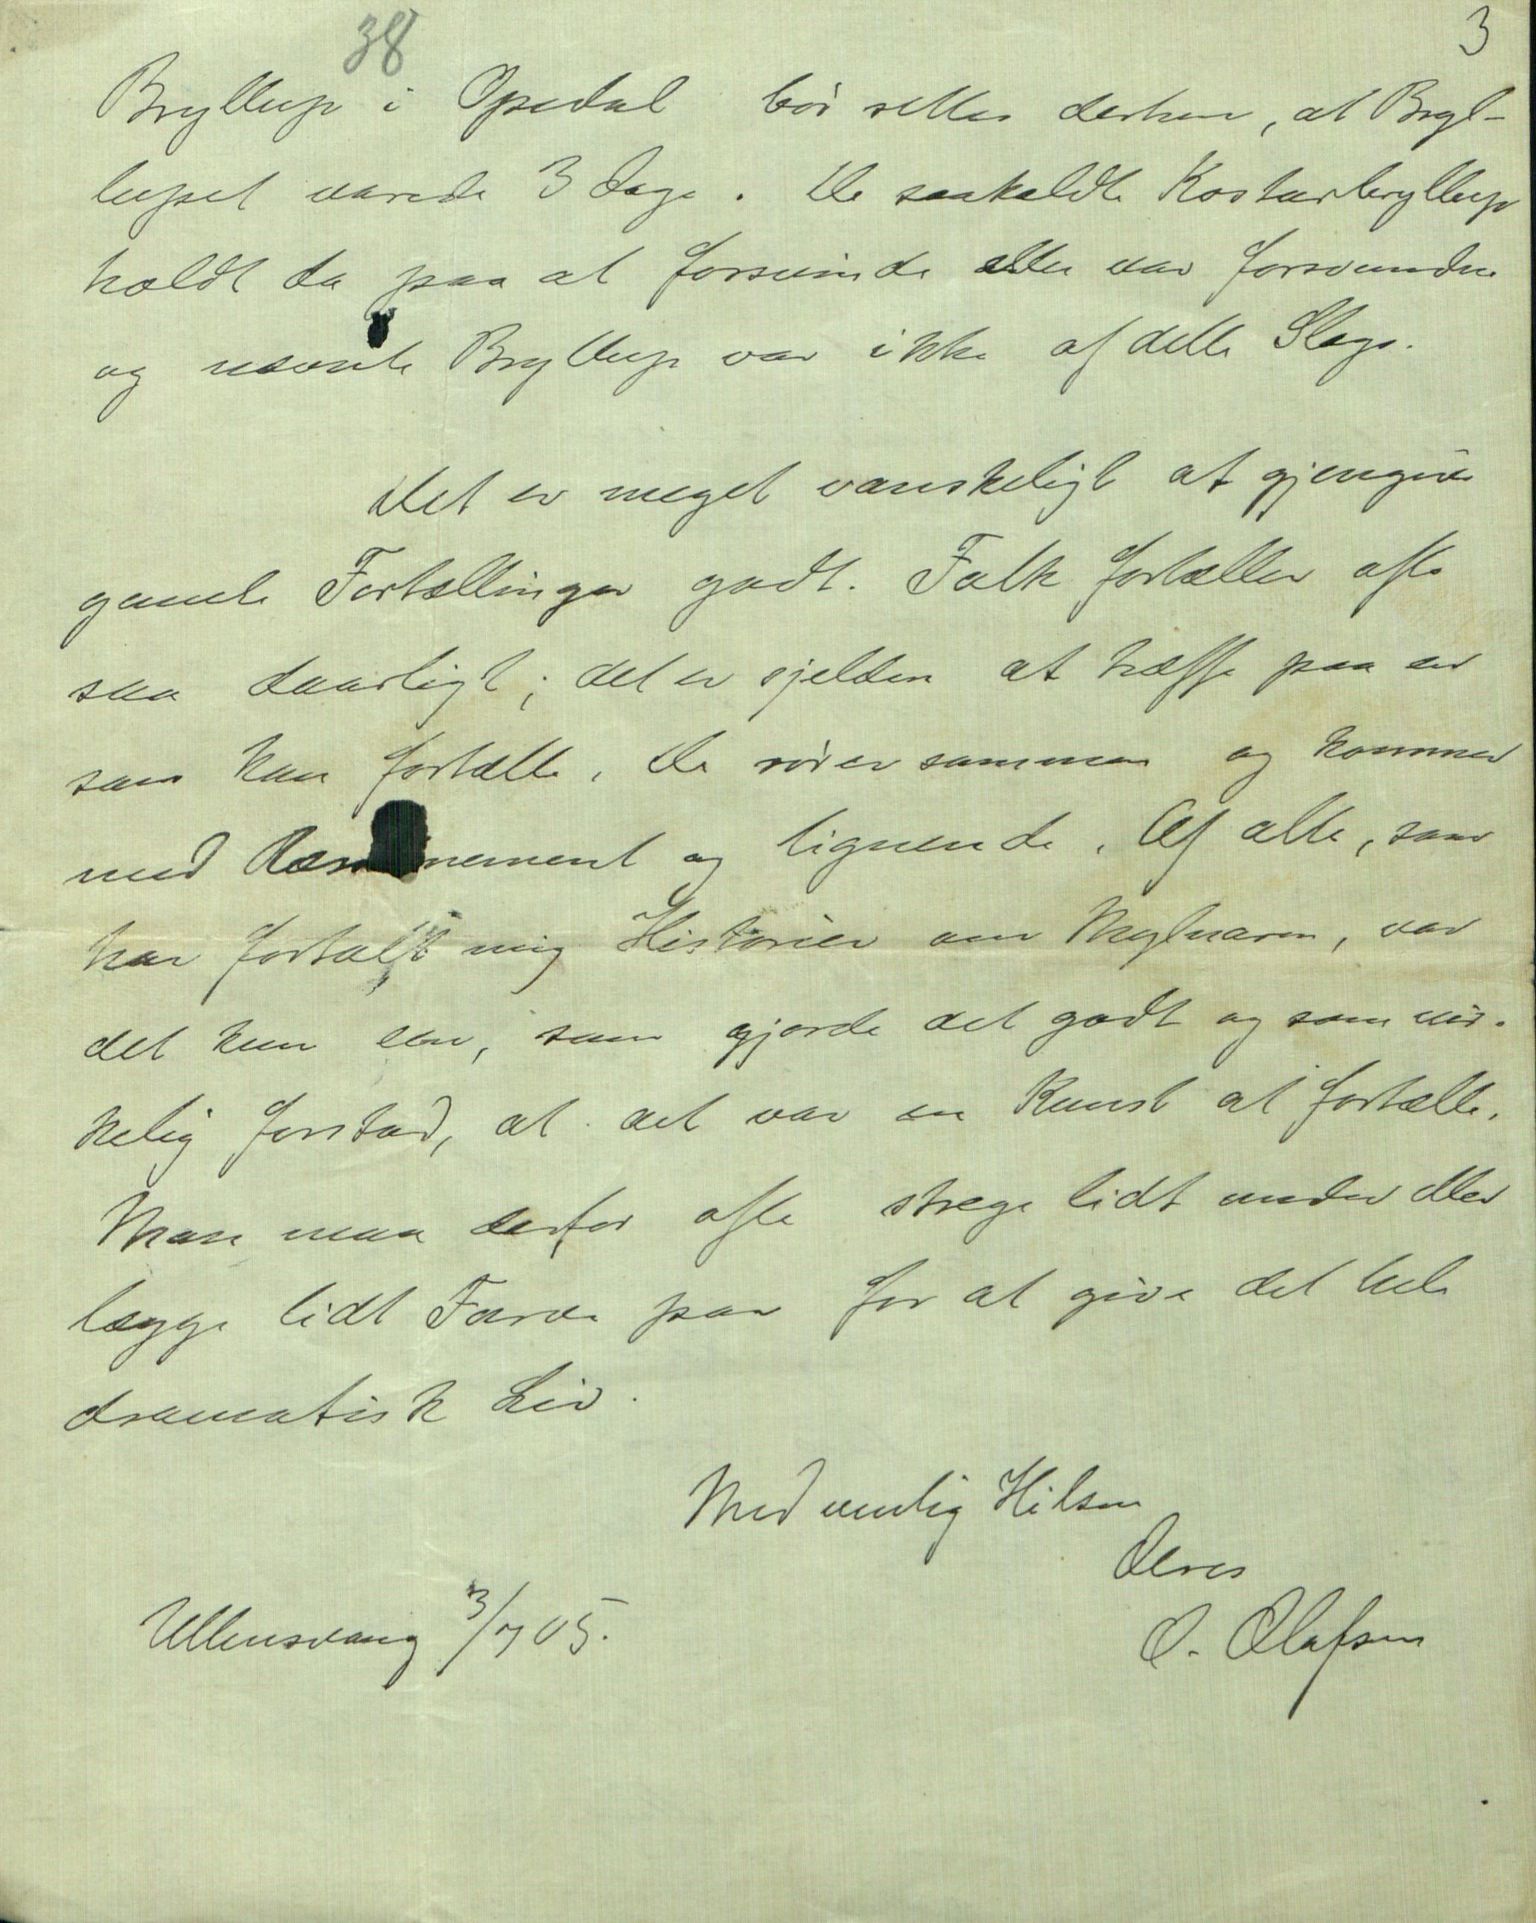 38
3
Bryllup i Opedal bör rettes derhen, at Bryl-
lupset varede 3 Dage. De saakaldte Kostarbryllup
holdt da paa at forsvinde eller var forsvundne
og nævnte Bryllup var ikke af dette Slags.
Det er meget vanskeligt at gjengive
gamle Fortællinger godt. Folk fortæller ofte
saa daarligt; det er sjelden at træffe paa en
som kan fortælle. De rörer sammen og kommer
med og lignende. Af alle, som
har fortalt mig Historier om Mylnaren, var
det kun een, som gjorde det godt og som vir-
kelig forstod, at det var en Kunst at fortælle.
Man maa derfor ofte strege lidt under eller
lægge lidt Farve paa for at give det hele
dramatisk Liv.
Med venlig Hilsen
Deres
O. Olafsen
Ullensvang 3/7 05.